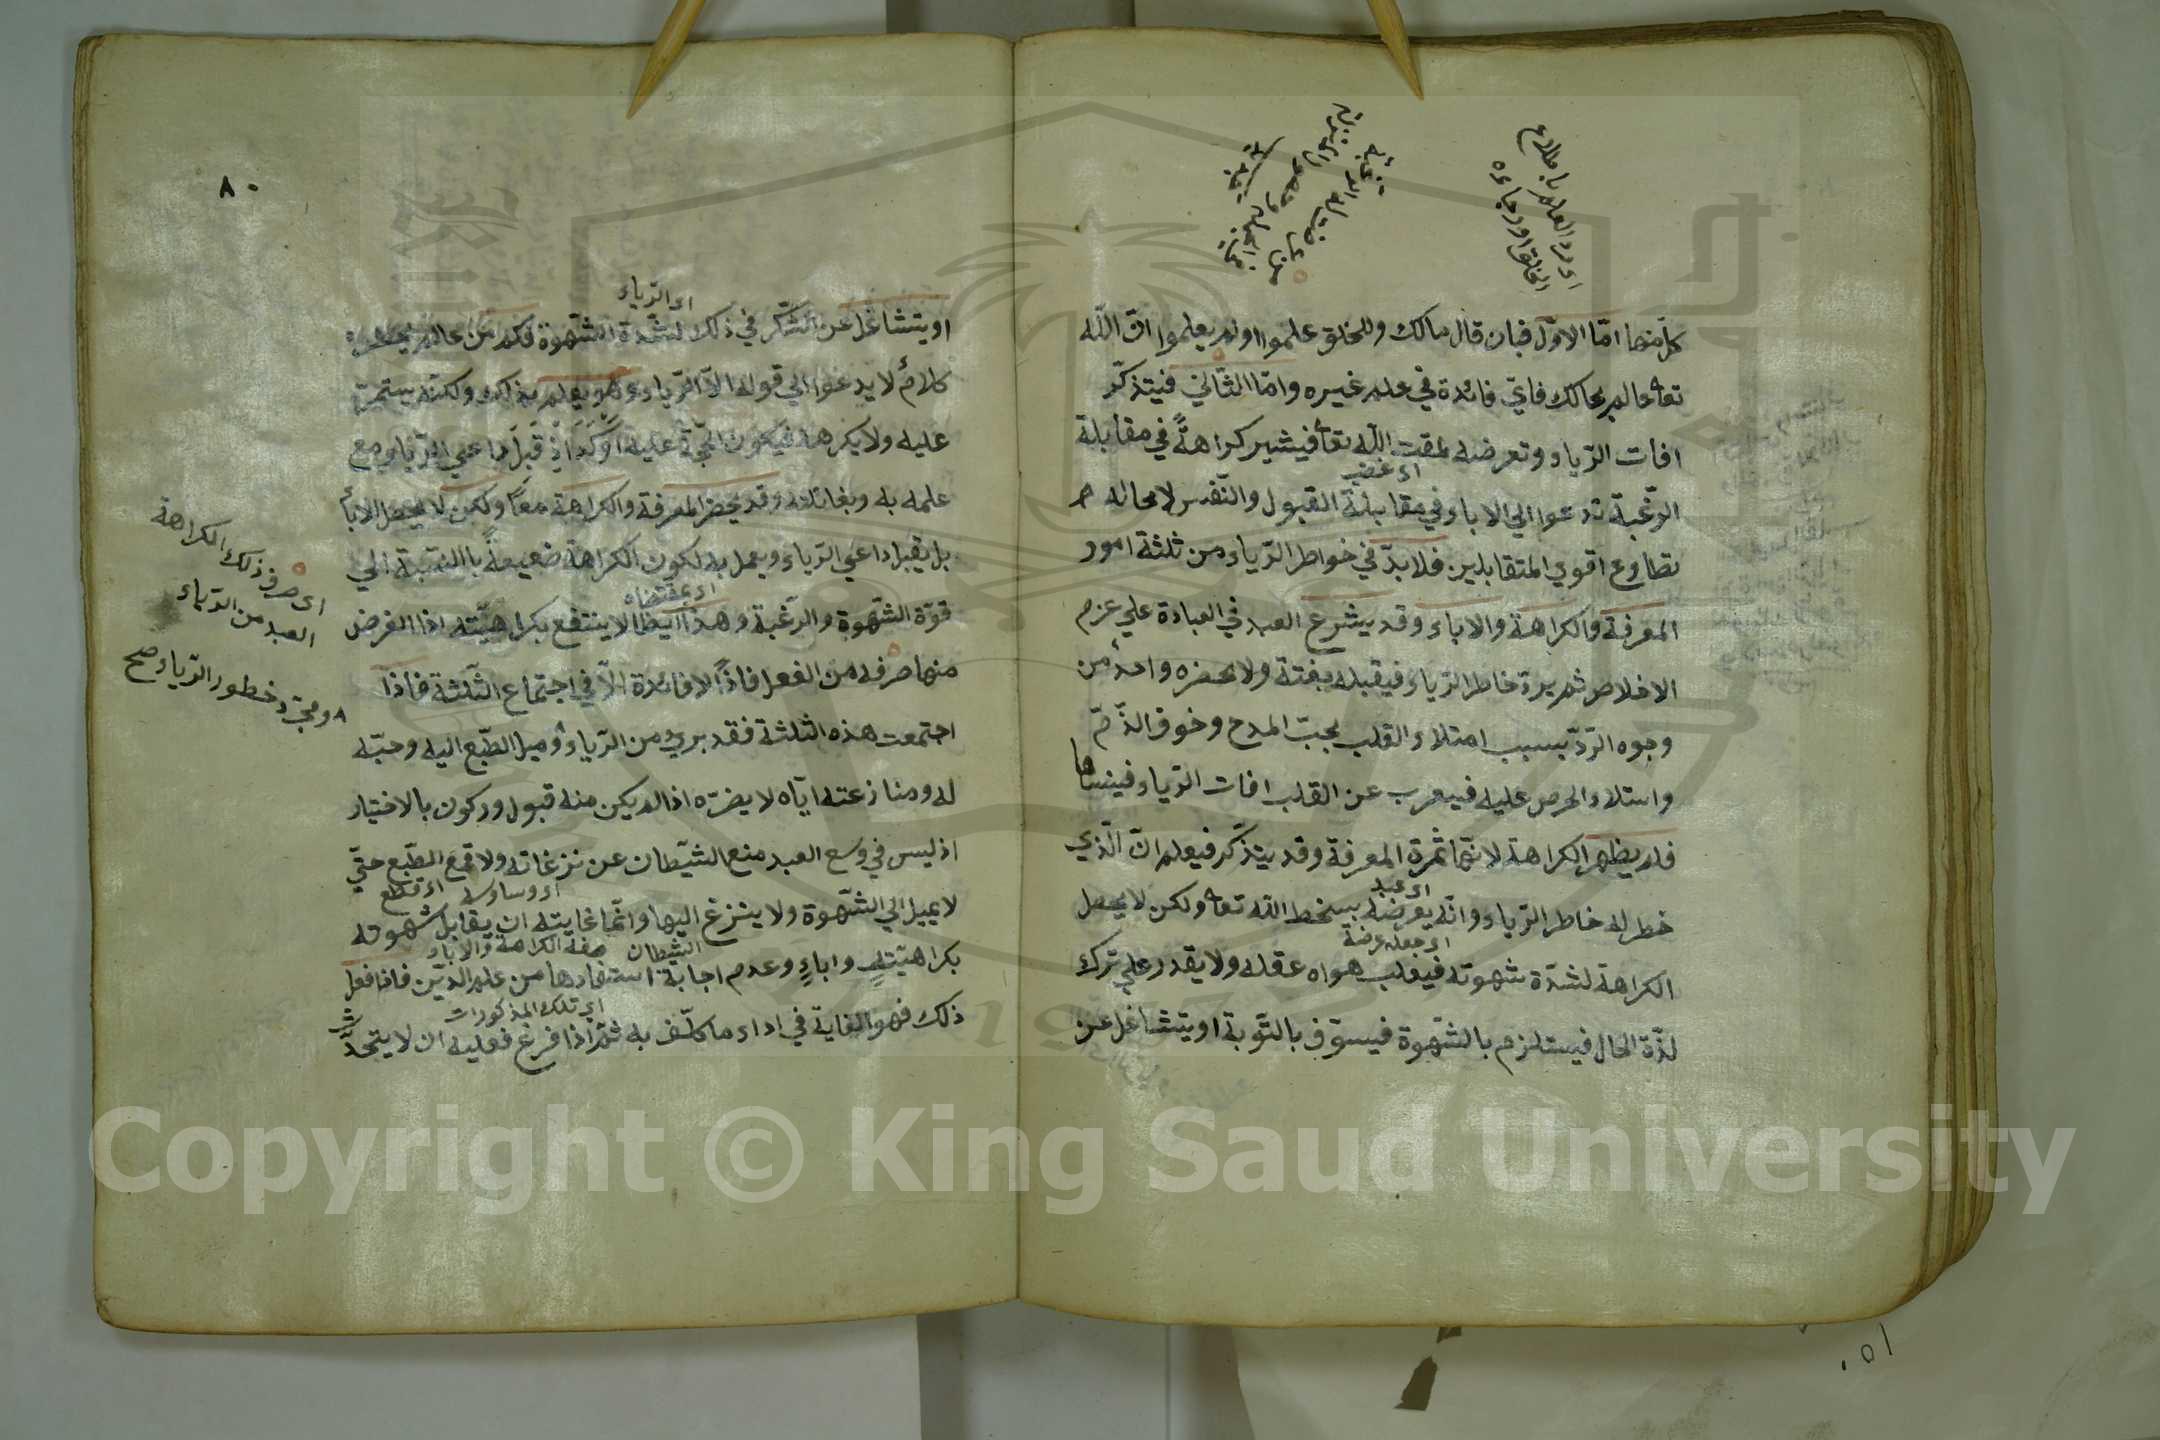 كلّ منهما امّا الاوّل فبان قال مالك وللخلق علموا اولم يعلموا انّ اللّه
تعا عالم بحالك فايّ فائدة في علم غيره وامّا الثّاني فيتذكّر
افات الرّياء وتعرضه لمقت اللّه تعا فيشير كراهةً في مقابلة
اى غضب
الرّغبة تدعوا الي الاباء في مقابلة القبول والنّفس لا محاله
تطاوع اقوي المتقابلين فلا بدّ في خواطر الرّياء من ثلثة امور
المعرفة والكراهة والاباء وقد يشرع العبد في العبادة علي عزم
الاخلاص ثم يرد خاطر الرّياء فيقبله بغتة ولا يحضره واحدٌ من
وجوه الرّدّ بسبب امتلاء القلب بحبّ المدح وخوف الذّمّ
واستلاء الحرص عليه فيعزب عن القلب افات الرّياء فينساها
فلم يظهر الكراهة لانّها ثمرة المعرفة وقد يتذكّر فيعلم انّ الّذي
اى عبد
خطر له خاطر الرّياء وانّه يعرضه بسخط اللّه تعا ولكن لا يحصل
اى جعله عرضة
الكراهة لشدّة شهوته فيغلب هواه عقله ولا يقدر علي ترك
لذّة الحال فيستلزم بالشّهوة فيسوّف بالتّوبة او يتشاغل عن
٨٠
اى الرّياء
او يتشاغل عن التّفكّر في ذلك لشدّة الشّهوة فكم من عالم يحضره
كلامٌ لا يدعوا الي قوله الاّ الرّياء وهو يعلم بذلك ولكنّه يستمرّ
عليه ولا يكرهه فيكون الحجّة عليه اوكد اذ قبل داعي الرّياء مع
علمه به وبغائلته وقد يحضر المعرفة والكراهة معاً ولكن لا يحصل الاباء
بل يقبل داعي الرّياء ويعمل به لكون الكراهة ضعيفةً باالنّسبة الي
اى بمقتضاه
قوّة الشّهوة والرّغبة وهذا ايظا لا ينتفع بكراهيّته اذ الغرض
منها صرفه من الفعل فاذاً لا فائدة الاّ في اجتماع الثّلثة فاذا
اجتمعت هذه الثلثة فقد بريء من الرّياء وميل الطّبع اليه وحبّه
له ومنازعته ايّاه لا يضرّه اذا لم يكن منه قبول وركون بالاختيار
اذ ليس في وسع العبد منع الشّيطان عن نزغاته ولا قمع الطّبع حتّي
اى وساوسه اى قطع
لا يميل الي الشّهوة ولا ينزغ اليها وانّما غايته ان يقابل شهوته
الشيطان صفة الكراهة والاباء
بكراهيّته واباءٍ وعدم اجابة استفادها من علم الدّين فاذا فعل
اى تلك المذكورات
ذلك فهو الغاية في اداء ما كلّف به ثمّ اذا فرغ فعليه ان لا يتحدّث
اى صرف ذلك الكراهة
العبد من الرّياء
ومجرّد خطور الرّياء صح
Copyright © King Saud University
1957